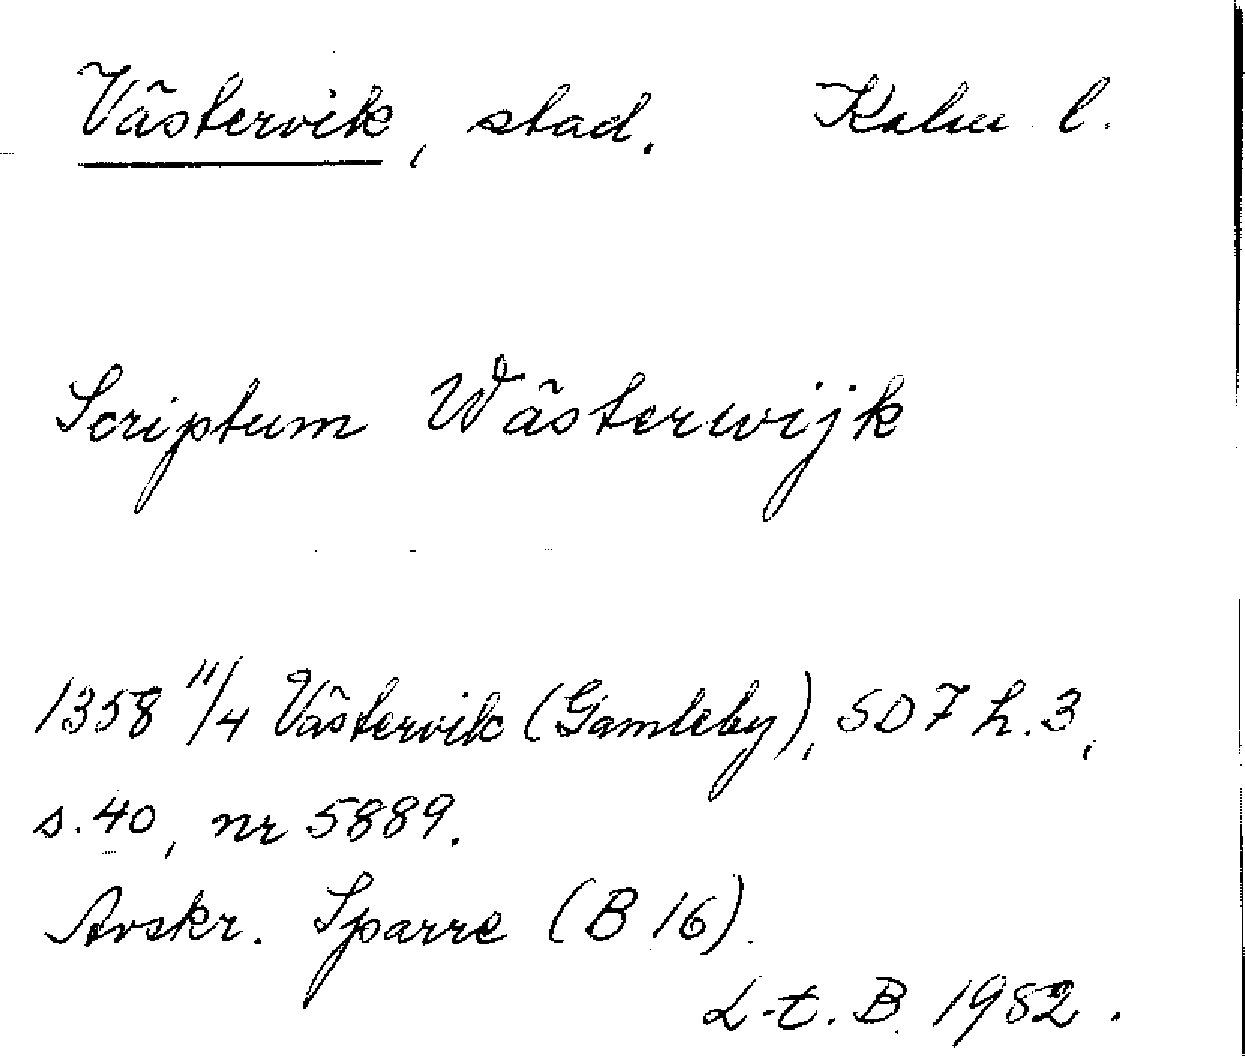 Västervik, stad. Kalm l.
Scriptum Wästerwijk
1358 11/4 Västervik (Gamleby), SD 7 h. 3,
s. 40, nr 5889.
Avskr. Sparre (B 16).
L-t. B. 1982.